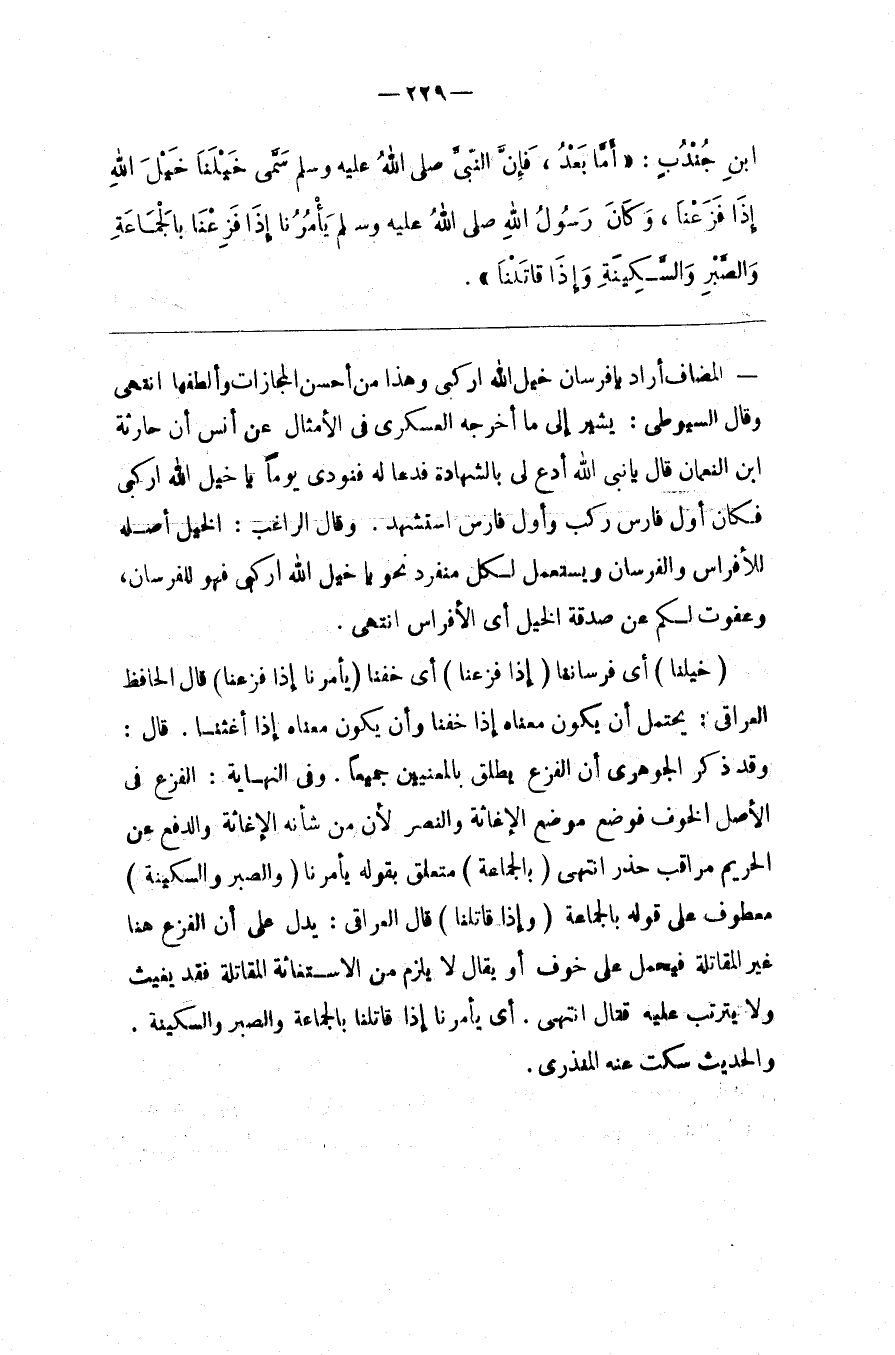 — ٢٢٩ —
ابنِ جُنْدُبٍ : « أَمَّا بَعْدُ ، فَإِنَّ النَّبِىَّ صلى اللهُ عليه وسلم سَمَّى خَيْلَنَا خَيْلَ اللهِ
إِذَا فَزَعْنَا ، وَكَانَ رَسُولُ اللهِ صلى اللهُ عليه وسلم يَأْمُرُنا إِذَا فَزِعْنَا بالَجْمَاعَةِ
وَالصَّبْرِ وَالسَّكِينَةِ وَإِذَا قاتَلْنَا » .
— المضاف أراد يافرسان خيل الله اركبى وهذا من أحسن المجازات وألطفها انتهى
وقال السيوطى : يشير إلى ما أخرجه العسكرى فى الأمثال عن أنس أن حارثة
ابن النعمان قال يانبى الله أدع لى بالشهادة فدعا له فنودى يوماً يا خيل الله اركبى
فكان أول فارس ركب وأول فارس استشهد . وقال الراغب : الخيل أصله
للأفراس والفرسان ويستعمل لكل منفرد نحو يا خيل الله اركبى فهو للفرسان،
وعفوت لكم عن صدقة الخيل أى الأفراس انتهى .
( خيلنا ) أى فرساننا ( إذا فزعنا ) أى خفنا ( يأمرنا إذا فزعنا ) قال الحافظ
العراقى : يحتمل أن يكون معناه إذا خفنا وأن يكون معناه إذا أغثنا . قال :
وقد ذكر الجوهرى أن الفزع يطلق بالمعنيين جميعاً . وفى النهاية : الفزع فى
الأصل الخوف فوضع موضع الإغاثة والنصر لأن من شأنه الإغاثة والدفع عن
الحريم مراقب حذر انتهى ( بالجماعة ) متعلق بقوله يأمرنا ( والصبر والسكينة )
معطوف على قوله بالجماعة ( وإذا قاتلنا ) قال العراقى : يدل على أن الفزع هنا
غير المقاتلة فيحمل على خوف أو يقال لا يلزم من الاستغاثة المقاتلة فقد يغيث
ولا يترتب عليه قتال انتهى . أى يأمرنا إذا قاتلنا بالجماعة والصبر والسكينة .
والحديث سكت عنه المنذرى .